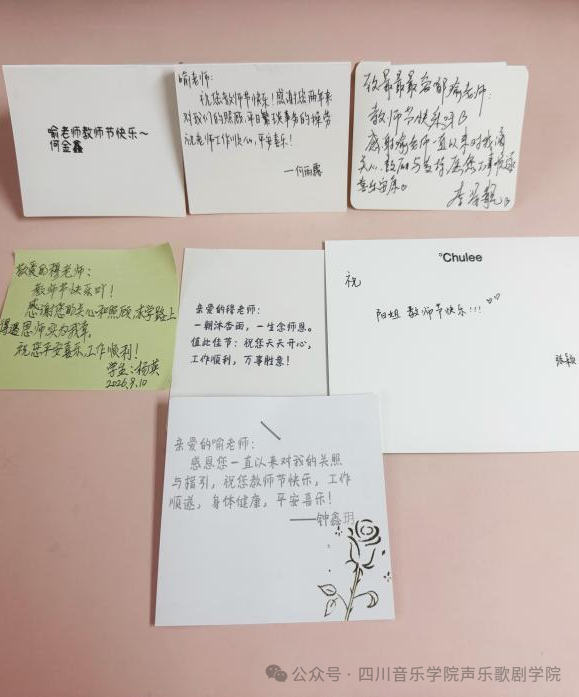 喻老师教师节快乐~
何金鑫
喻老师:
祝您教师节快乐!感谢您两年来
对我们的照顾,平日繁琐事务的操劳
祝老师工作顺心,平安喜乐!
—何雨露
致最最最最最
教师节快乐呀
感谢喻老师一直以来对我滴
关心、教研与支持,愿您万事顺遂
喜乐安康。
敬爱的穆老师:
教师节快乐吖!
感谢您的关心和照顾,求学路上
得遇恩师实为我幸,
祝您平安喜乐,工作顺利!
学生:杨英
2025.9.10
亲爱的穆老师:
一朝沐杏雨,一生念师恩。
值此佳节:祝您天天开心,
工作顺利,万事胜意!
°Chulee
祝
阳姐 教师节快乐!!!
张颖
亲爱的喻老师:
感恩您一直以来对我的关照
与指引,祝您教师节快乐,工作
顺遂,身体健康,平安喜乐!
——钟鑫玥
公众号·四川音乐学院声乐歌剧学院